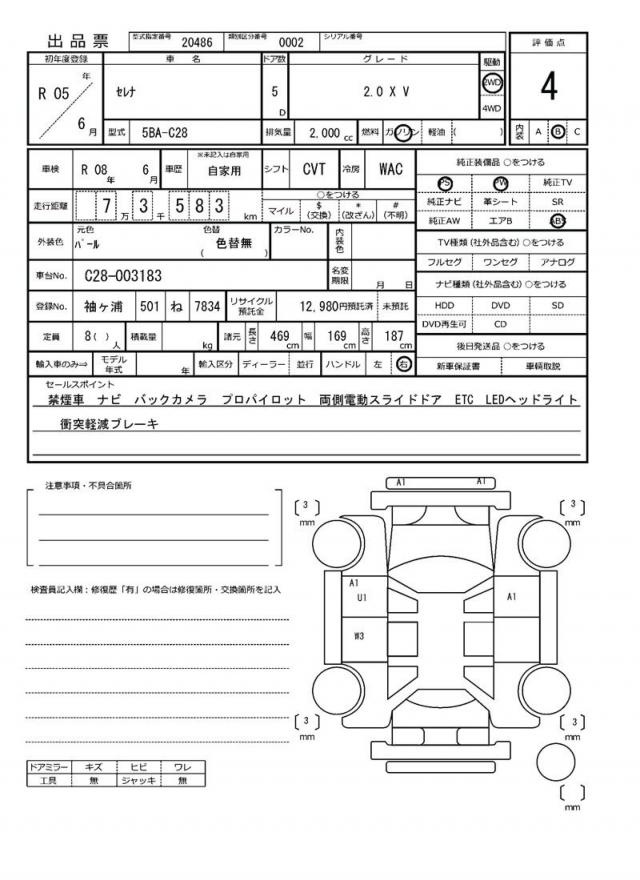 出品票
型式指定番号 20486 類別区分番号 0002 シリアル番号
評価点
4
内装 A B C
初年度登録 車名 ドア数 グレード 駆動
R 05 年 6 月
セレナ 5 D 2.0 X V 2WD 4WD
型式 5BA-C28 排気量 2,000 cc 燃料 ガソリン 軽油 ( )
車検 R 08 年 6 月 車歴 ※未記入は自家用 自家用 シフト CVT 冷房 WAC
走行距離 7 万 3 千 5 8 3 km
○をつける
マイル $ (交換) * (改ざん) # (不明)
外装色 元色 パール 色替 ( 色替無 ) カラーNo. 内装色
車台No. C28-003183 名変期限 月 日
登録No. 袖ヶ浦 501 ね 7834 リサイクル預託金 12,980円預託済 未預託
定員 8( ) 人 積載量 kg 諸元 長さ 469 cm 幅 169 cm 高さ 187 cm
輸入車のみ⇒ モデル年式 年 輸入区分 ディーラー 並行 ハンドル 左 右
純正装備品 ○をつける
PS PW 純正TV
純正ナビ 革シート SR
純正AW エアB ABS
TV種類 (社外品含む) ○をつける
フルセグ ワンセグ アナログ
ナビ種類 (社外品含む) ○をつける
HDD DVD SD
DVD再生可 CD
後日発送品 ○をつける
新車保証書 車輌取説
セールスポイント
禁煙車 ナビ バックカメラ プロパイロット 両側電動スライドドア ETC LEDヘッドライト
衝突軽減ブレーキ
注意事項・不具合箇所
検査員記入欄:修復歴「有」の場合は修復箇所・交換箇所を記入
ドアミラー キズ ヒビ ワレ
工具 無 ジャッキ 無
A1 A1
3 mm
3 mm
A1
U1
A1
W3
3 mm
3 mm
mm